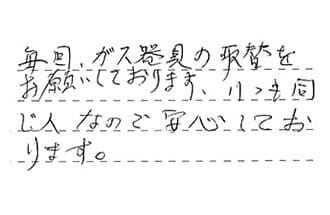 毎回、ガス器具の取替を
お願いしております、いつも同
じ人なので安心してお
ります。